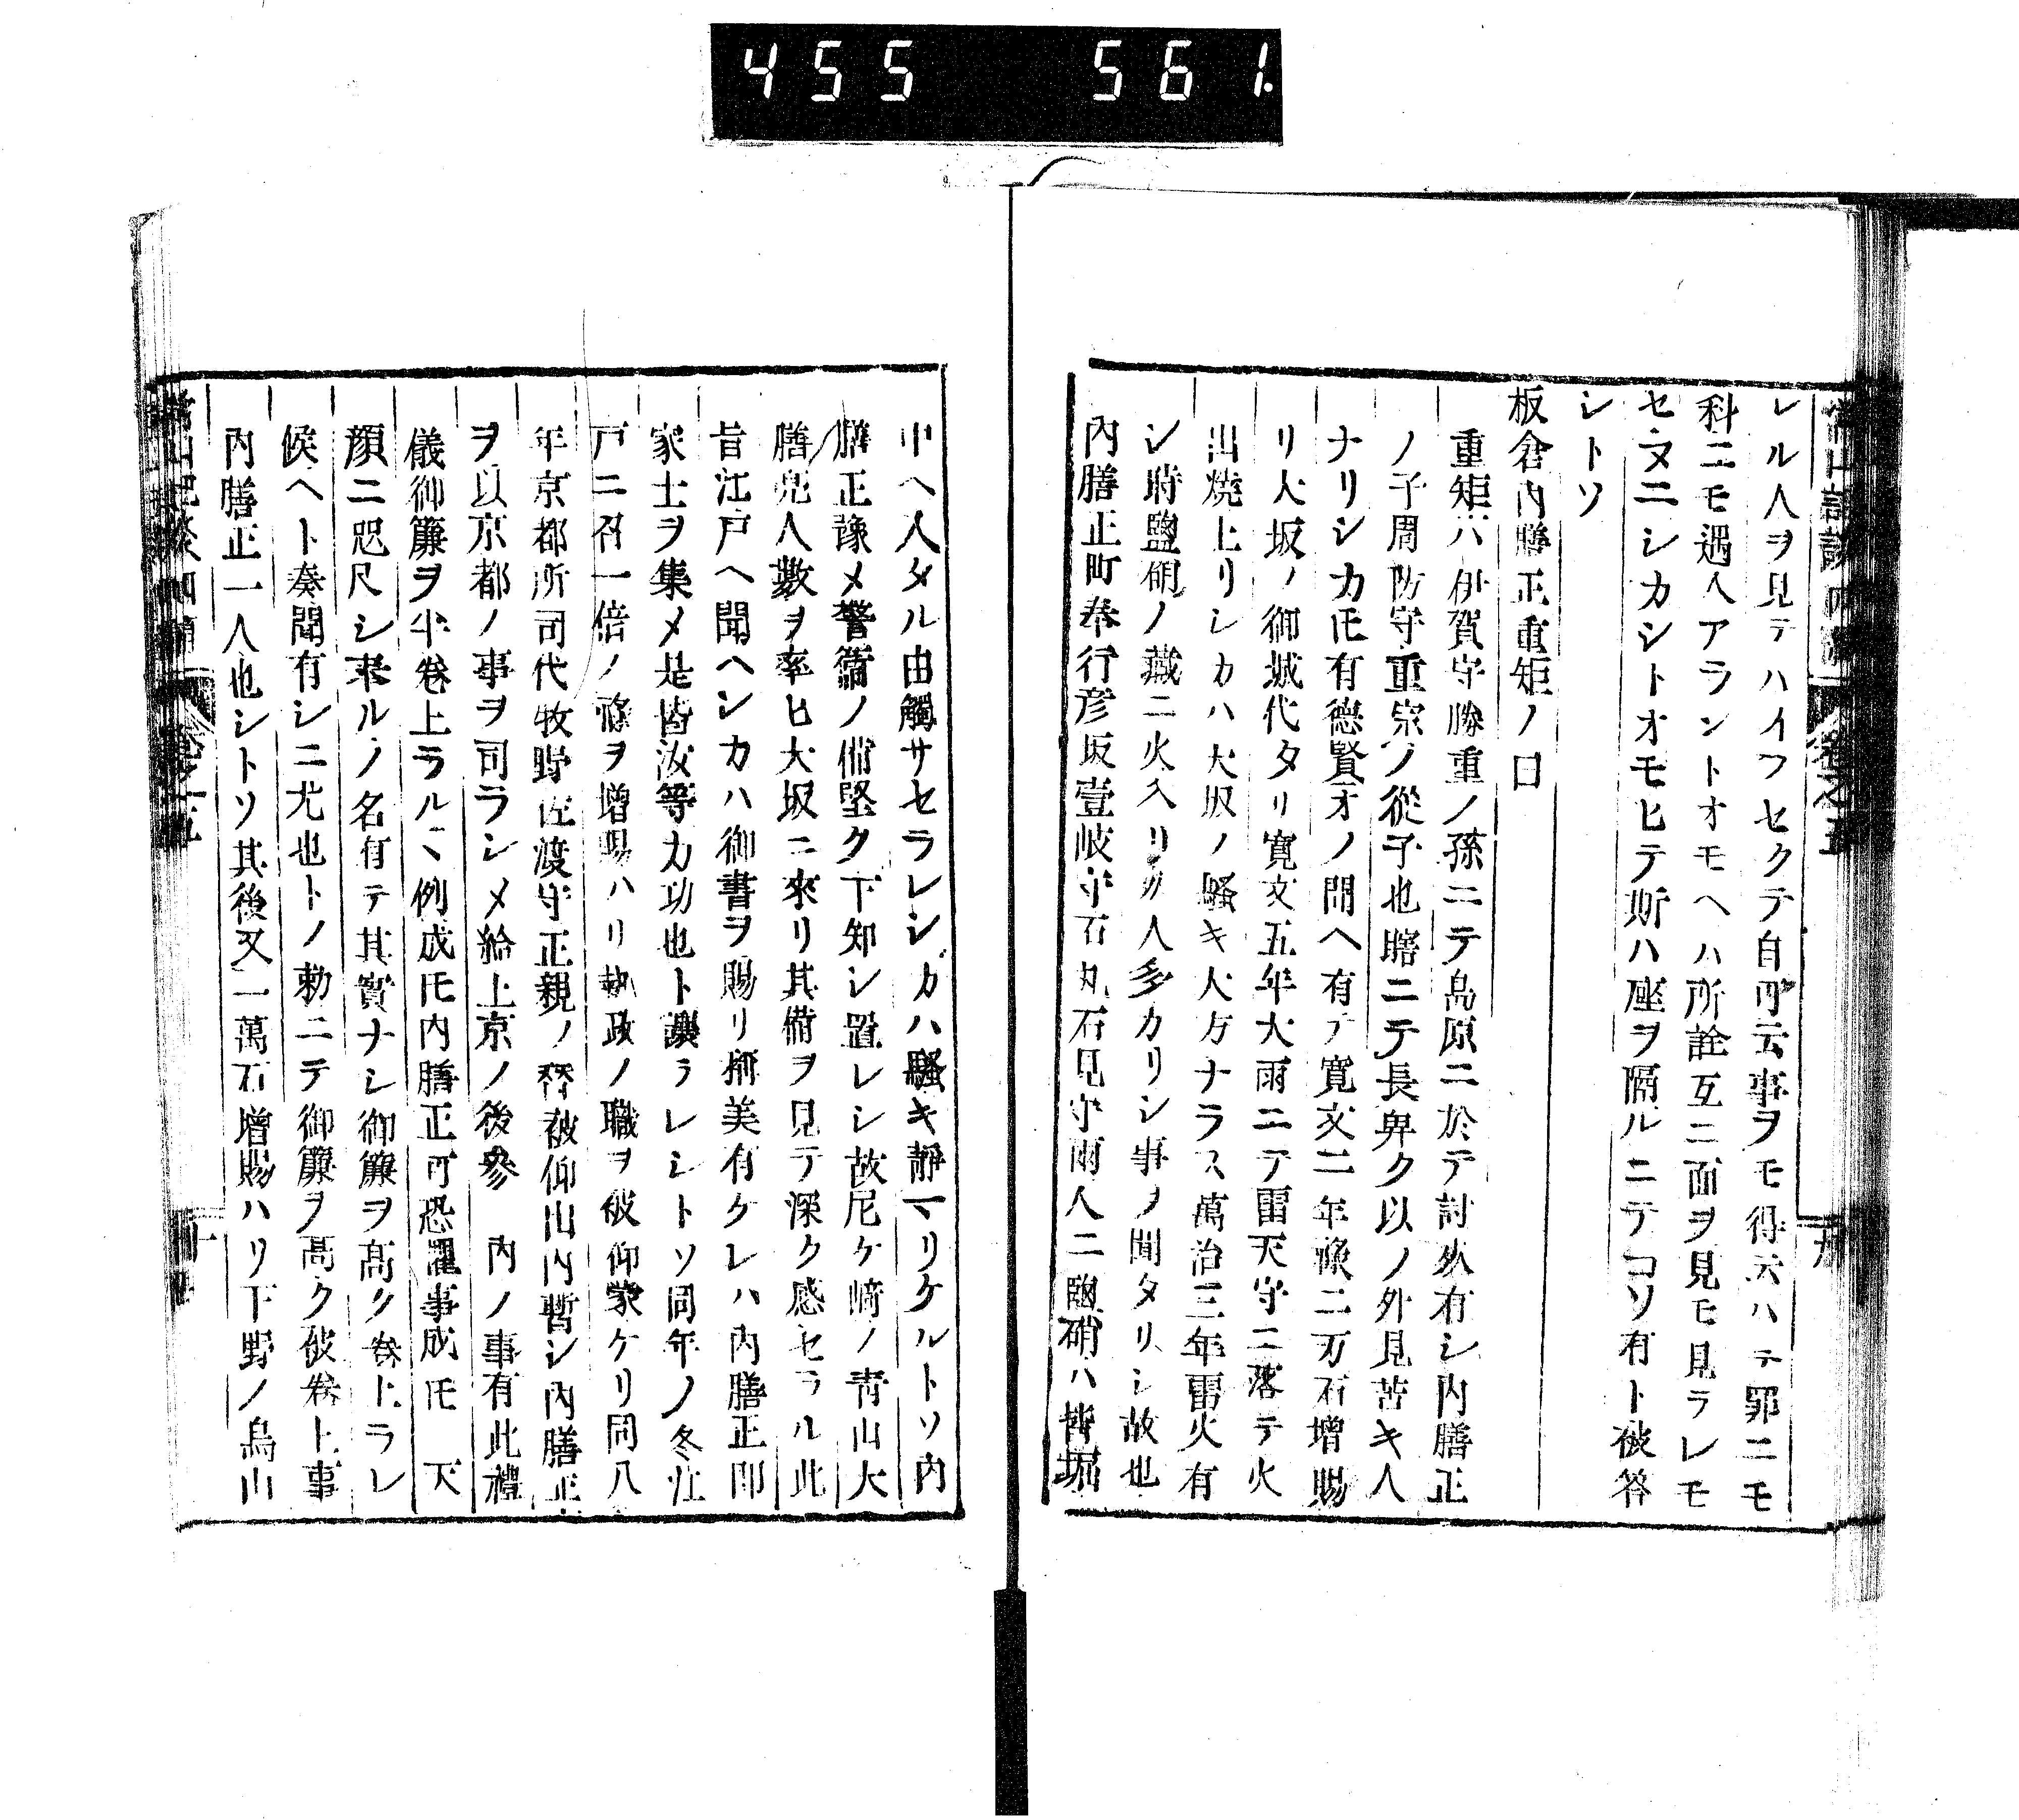 455 561.
レル人ヲ見テハイフセクテ自可云事ヲモ得云ハテ罪ニモ
科ニモ遇人アラントオモヘハ所詮互ニ面ヲ見モ見ラレモ
セヌニシカシトオモヒテ斯ハ座ヲ隔ルニテコソ有ト被答
シトソ
板倉内膳正重矩ノ曰
重矩ハ伊賀守勝重ノ孫ニテ島原ニ於テ討死有シ内膳正
ノ子周防守重宗ノ從子也瞎ニテ長卑ク以ノ外見苦キ人
ナリシカ𪜈有德賢才ノ聞ヘ有テ寛文二年禄二万石增賜
リ大坂ノ御城代タリ寛文五年大雨ニテ雷天守ニ落テ火
出燒上リシカハ大坂ノ騷キ大方ナラス萬治三年雷火有
シ時鹽硝ノ藏ニ火入リ死人多カリシ事ヲ聞タリシ故也
内膳正町奉行彦坂壹岐守石丸石見守兩人ニ鹽硝ハ皆堀
中ヘ入タル由觸サセラレシカハ騷キ靜マリケルトソ内
膳正豫メ警衞ノ備堅ク下知シ置レシ故尼ケ崎ノ青山大
膳亮人數ヲ率ヒ大坂ニ來リ其備ヲ見テ深ク感セラル此
旨江戸ヘ聞ヘシカハ御書ヲ賜リ褒美有ケレハ内膳正即
家士ヲ集メ是皆汝等カ功也ト讓ラレシトソ同年ノ冬江
戸ニ召一倍ノ祿ヲ增賜ハリ執政ノ職ヲ被仰蒙ケリ同八
年京都所司代牧野佐渡守正親ノ替被仰出内暫シ内膳正
ヲ以京都ノ事ヲ司ラシメ給上京ノ後參　内ノ事有此禮
儀御簾ヲ半卷上ラルヽ例成𪜈内膳正可恐懼事成𪜈　天
顔ニ咫尺シ奉ルノ名有テ其實ナシ御簾ヲ髙ク卷上ラレ
候ヘト奏聞有シニ尤也トノ勅ニテ御簾ヲ髙ク被卷上事
内膳正一人也シトソ其後又一萬石增賜ハリ下野ノ烏山